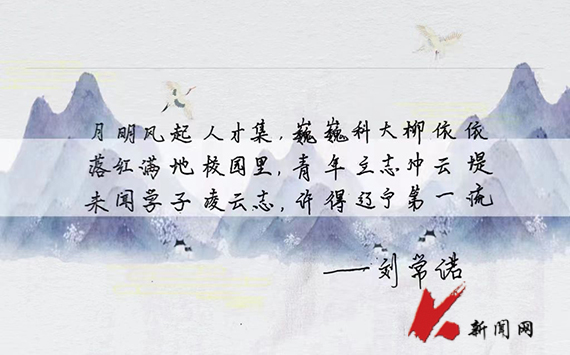 月明风起人才集,巍巍科大柳依依
落红满地校园里,青年立志冲云堤
未闻学子凌云志,许得辽宁第一流
——刘常诺
新闻网